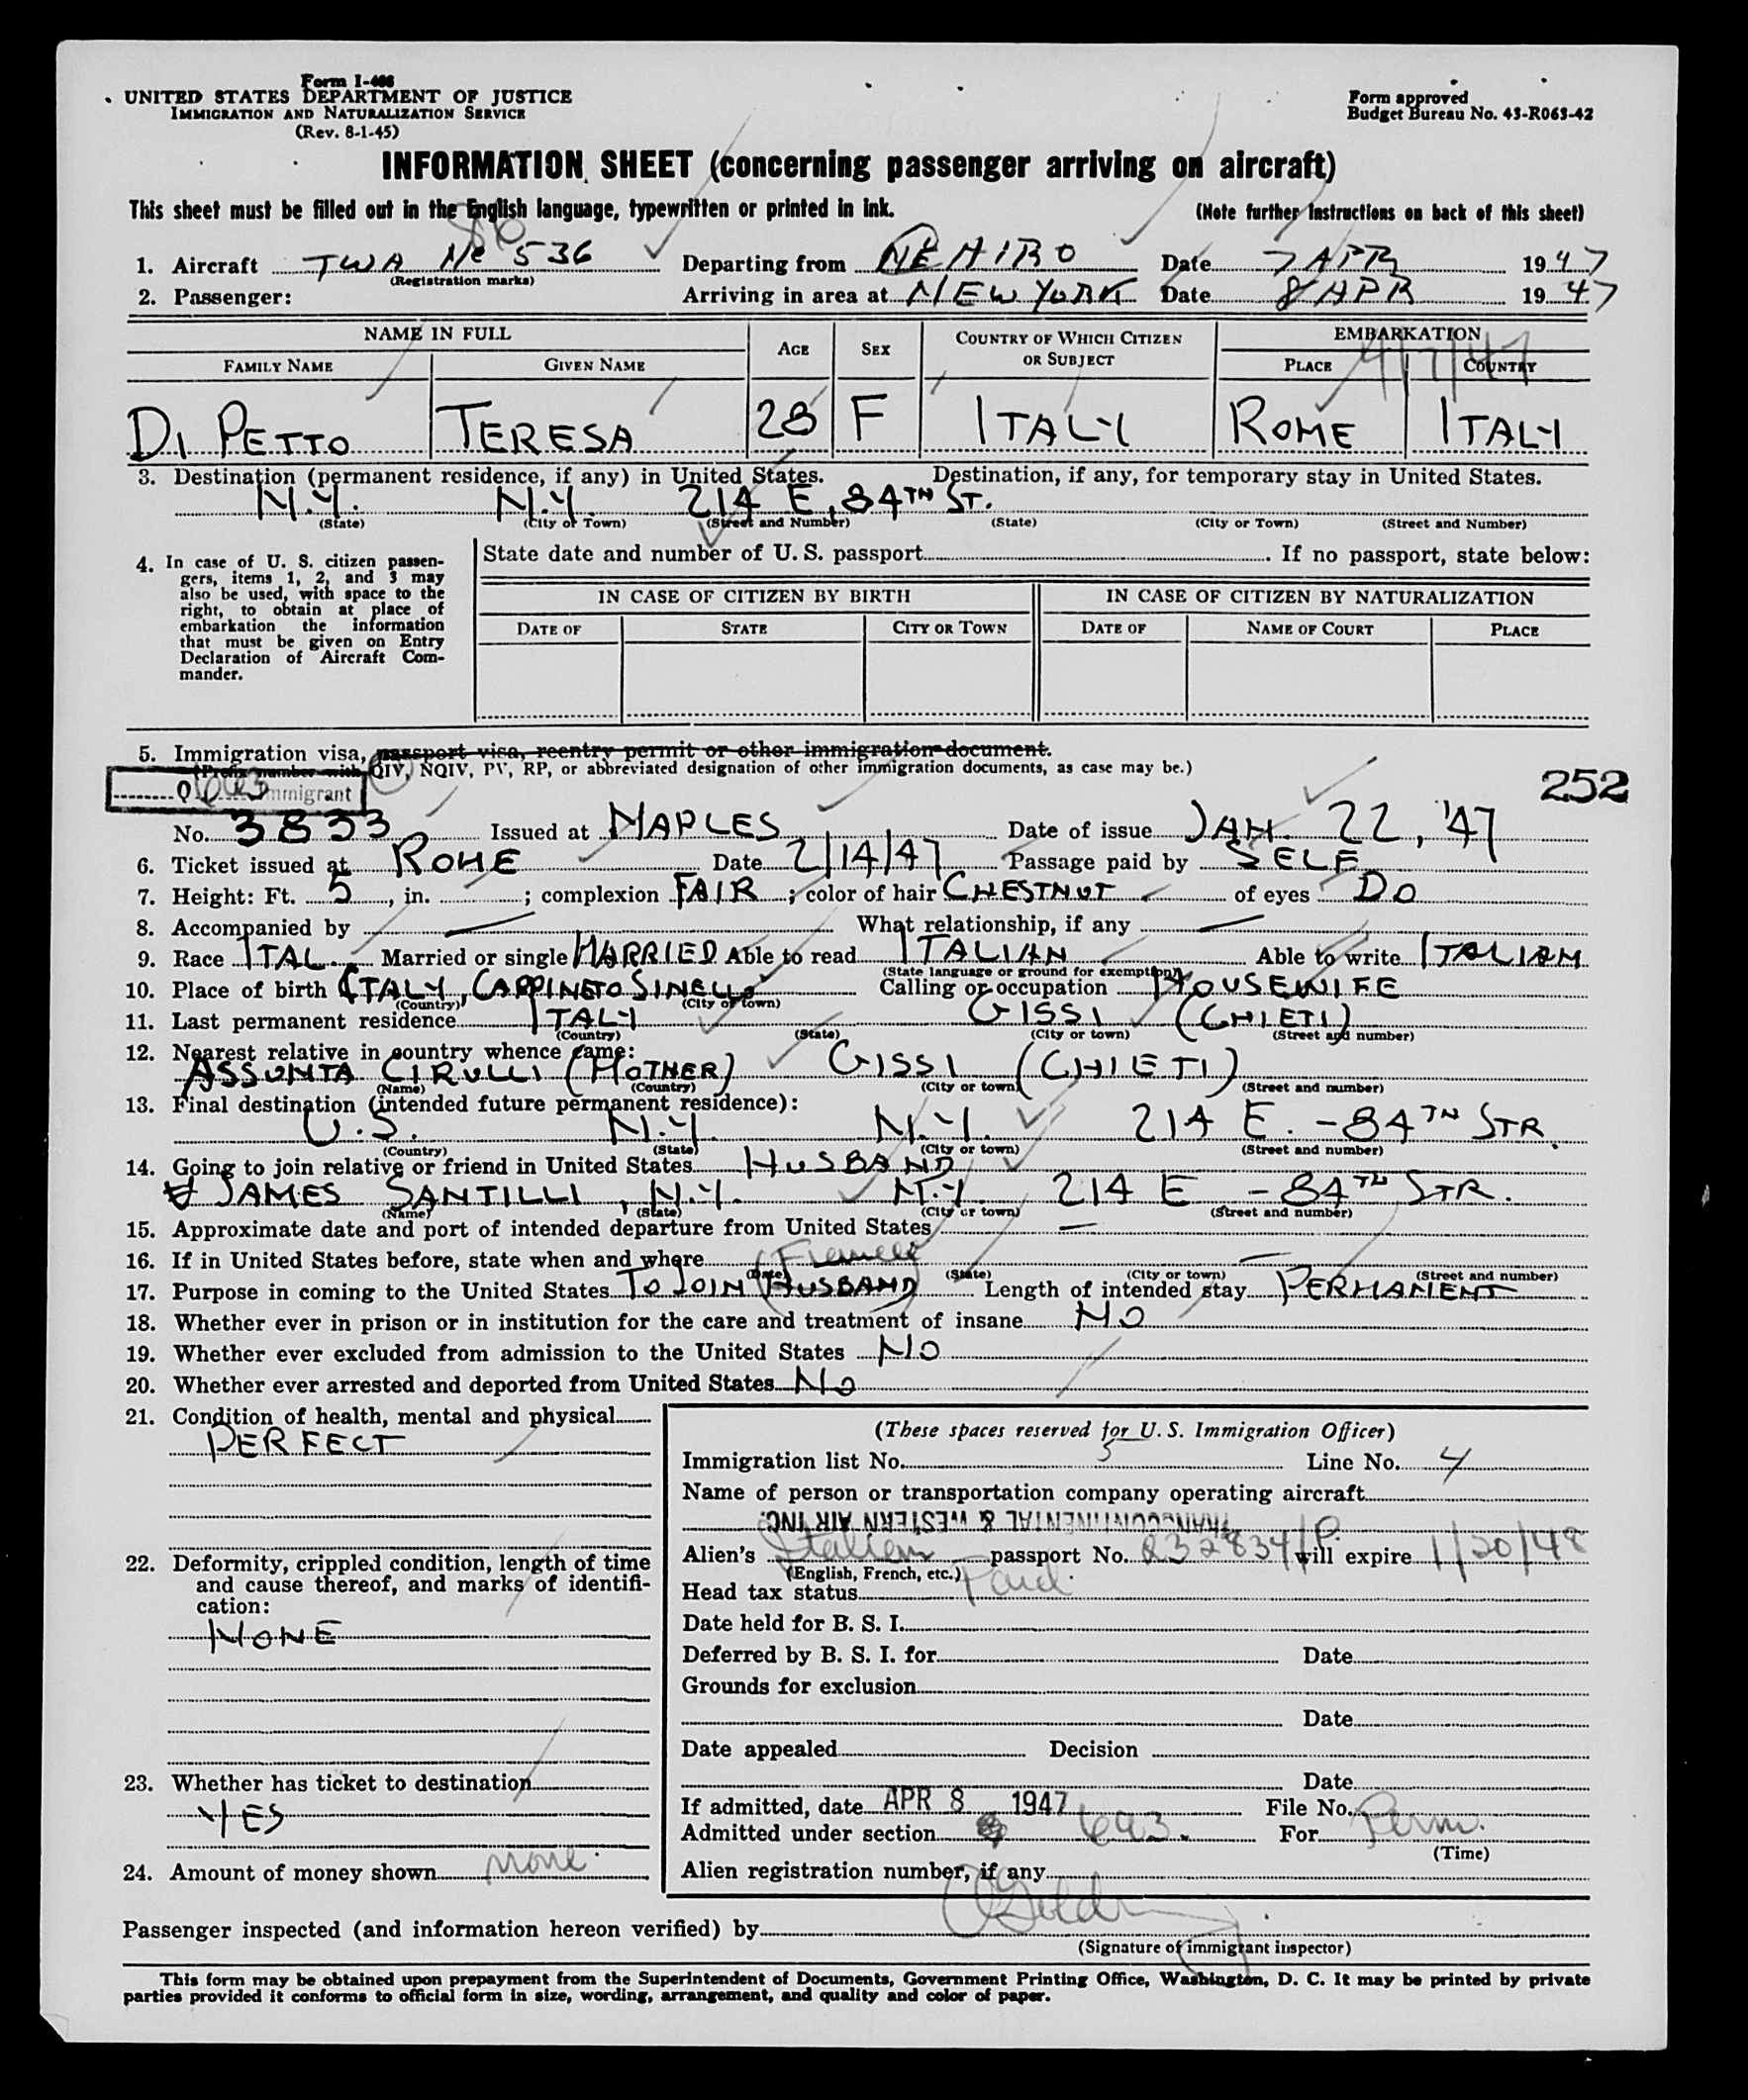 Form I-466
UNITED STATES DEPARTMENT OF JUSTICE
IMMIGRATION AND NATURALIZATION SERVICE
(Rev. 8-1-45)
Form approved
Budget Bureau No. 43-R063-42
INFORMATION SHEET (concerning passenger arriving on aircraft)
This sheet must be filled out in the English language, typewritten or printed in ink. (Note further instructions on back of this sheet)
1. Aircraft TWA 536 Departing from Date 7 APR 1947
(Registration marks)
2. Passenger: Arriving in area at NEW YORK Date 8 APR 1947
NAME IN FULL AGE SEX COUNTRY OF WHICH CITIZEN OR SUBJECT EMBARKATION
FAMILY NAME GIVEN NAME PLACE COUNTRY
4/7/47
DI PETTO TERESA 28 F ITALY ROME ITALY
3. Destination (permanent residence, if any) in United States. Destination, if any, for temporary stay in United States.
N.Y. N.Y. 214 E, 84TH ST.
(State) (City or Town) (Street and Number) (State) (City or Town) (Street and Number)
4. In case of U. S. citizen passen-
gers, items 1, 2, and 3 may
also be used, with space to the
right, to obtain at place of
embarkation the information
that must be given on Entry
Declaration of Aircraft Com-
mander.
State date and number of U. S. passport. If no passport, state below:
IN CASE OF CITIZEN BY BIRTH IN CASE OF CITIZEN BY NATURALIZATION
DATE OF STATE CITY OR TOWN DATE OF NAME OF COURT PLACE
5. Immigration visa, passport visa, reentry permit or other immigration document.
(Prefix number with QIV, NQIV, PV, RP, or abbreviated designation of other immigration documents, as case may be.)
Q Immigrant
252
No. 3833 Issued at NAPLES Date of issue JAN. 22, '47
6. Ticket issued at ROME Date 2/14/47 Passage paid by SELF
7. Height: Ft. 5, in. ; complexion FAIR; color of hair CHESTNUT of eyes DO
8. Accompanied by — What relationship, if any —
9. Race ITAL. Married or single MARRIED Able to read ITALIAN Able to write ITALIAN
(State language or ground for exemption)
10. Place of birth ITALY, CARPINETO SINELLO Calling or occupation HOUSEWIFE
(Country) (City or town)
11. Last permanent residence ITALY GISSI (CHIETI)
(Country) (State) (City or town) (Street and number)
12. Nearest relative in country whence came:
ASSUNTA CIRULLI (MOTHER) GISSI (CHIETI)
(Name) (Country) (City or town) (Street and number)
13. Final destination (intended future permanent residence):
U.S. N.Y. N.Y. 214 E. - 84TH STR.
(Country) (State) (City or town) (Street and number)
14. Going to join relative or friend in United States HUSBAND
JAMES SANTILLI, N.Y. N.Y. 214 E - 84TH STR.
(Name) (State) (City or town) (Street and number)
15. Approximate date and port of intended departure from United States —
16. If in United States before, state when and where —
(Date) (State) (City or town) (Street and number)
17. Purpose in coming to the United States TO JOIN (HUSBAND) Length of intended stay PERMANENT
18. Whether ever in prison or in institution for the care and treatment of insane NO
19. Whether ever excluded from admission to the United States NO
20. Whether ever arrested and deported from United States NO
21. Condition of health, mental and physical
PERFECT
22. Deformity, crippled condition, length of time
and cause thereof, and marks of identifi-
cation:
NONE
23. Whether has ticket to destination
YES
24. Amount of money shown none.
(These spaces reserved for U. S. Immigration Officer)
Immigration list No. 5 Line No. 4
Name of person or transportation company operating aircraft
TRANSCONTINENTAL & WESTERN AIR INC.
Alien's Italian passport No. 232834/P. will expire 1/20/48
(English, French, etc.)
Head tax status Paid.
Date held for B. S. I.
Deferred by B. S. I. for Date
Grounds for exclusion
Date
Date appealed Decision
Date
If admitted, date APR 8 1947 File No.
Admitted under section 6a3. For Perm.
(Time)
Alien registration number, if any
Passenger inspected (and information hereon verified) by
(Signature of immigrant inspector)
This form may be obtained upon prepayment from the Superintendent of Documents, Government Printing Office, Washington, D. C. It may be printed by private
parties provided it conforms to official form in size, wording, arrangement, and quality and color of paper.